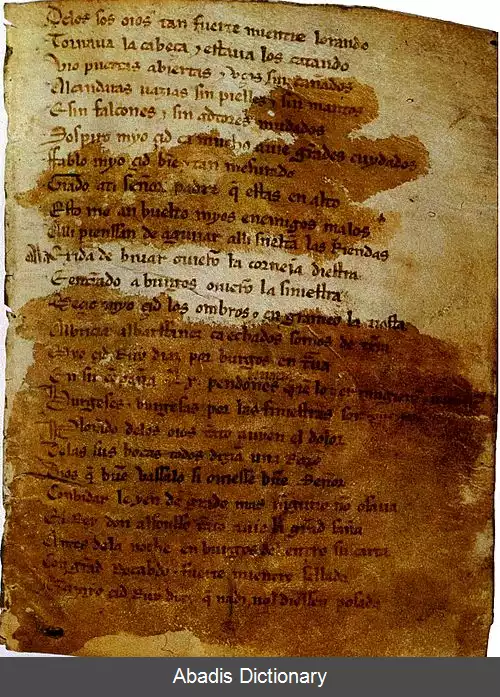 Delos sos oios tan fuerte mientre lorando
Tornaua la cabeça e estaua los catando
Vio puertas abiertas e vços sin cañados
Alcandaras uazias sin pielles e sin mantos
E sin falcones e sin adtores mudados
Sospiro myo çid ca mucho auie grandes cuydados
ffablo myo çid bien e tan mesurado
Grado ati señor padre q estas en alto
Esto me an buelto myos enemigos malos
Alli pienssan de aguiiar alli sueltan las Riendas
Ala exida de biuar ouieron la corneia diestra
E entrando a burgos ouieron la siniestra
Meçio myo çid los ombros e en grameo la tiesta
Albriçia albarffanez ca echados somos de tierra
Myo çid Ruy diaz por burgos en traua
En su conpaña Lx pendones
Burgeses e burgesas por las finiestras son
Plorando delos oios tanto auyen el dolor
Delas sus bocas todos dizian una Razon
Dios q buen vassalo si ouiesse buen Señor
Conbidar le yen de grado mas ninguno non osaua
El Rey don alfonsso tanto auie la grand saña
Antes dela noche en burgos del entro su carta
Con grand Recabdo e fuerte mientre sellada
Que a myo çid Ruy diaz q nadi nol diessen posada
Abadis Dictionary